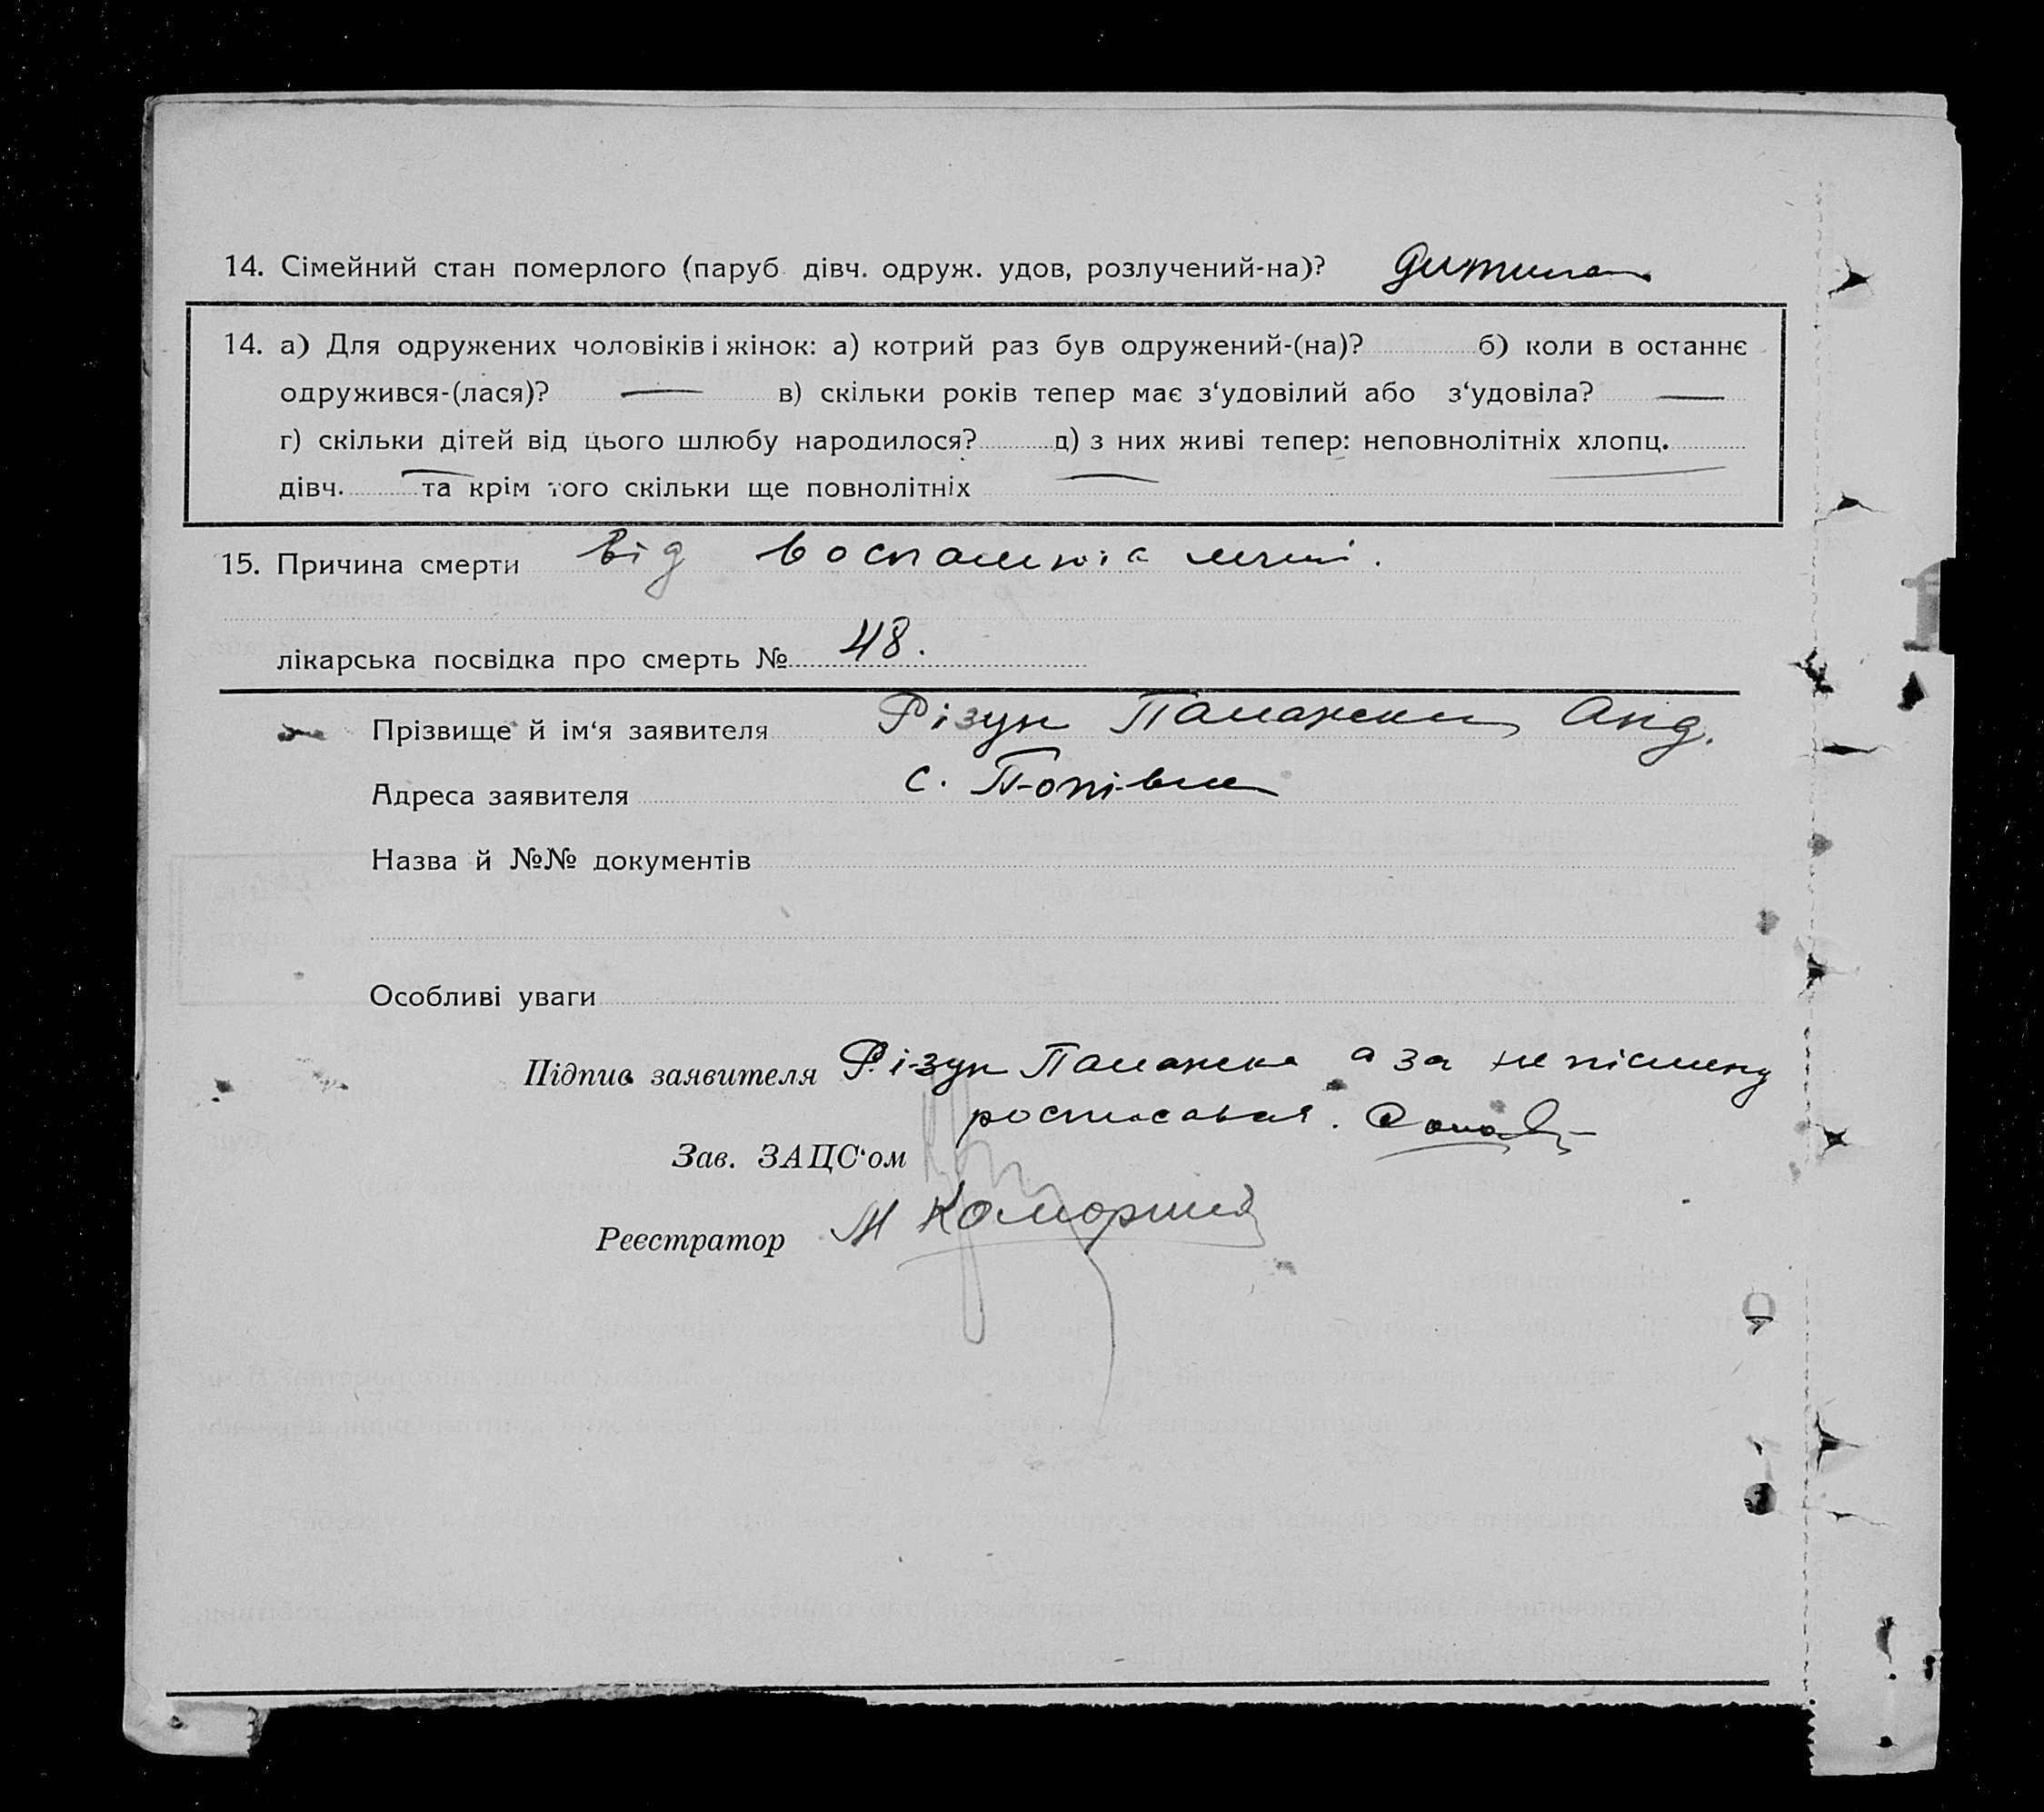 14. Сімейний стан померлого (паруб. дівч. одруж. удов, розлучений-на)? дитина
14. а) Для одружених чоловіків і жінок: а) котрий раз був одружений-(на)? б) коли в останнє
одружився-(лася)? — в) скільки років тепер має з‘удовілий або з‘удовіла? —
г) скільки дітей від цього шлюбу народилося? д) з них живі тепер: неповнолітніх хлопц.
дівч. та крім того скільки ще повнолітніх
15. Причина смерти від воспаления
лікарська посвідка про смерть № 48.
Прізвище й ім‘я заявителя Різун Панаске Анд.
Адреса заявителя с. Попівка
Назва й №№ документів
Особливі уваги
Підпис заявителя Різун Панаска а за не пісмену
росписався.
Зав. ЗАЦС‘ом
Реєстратор М